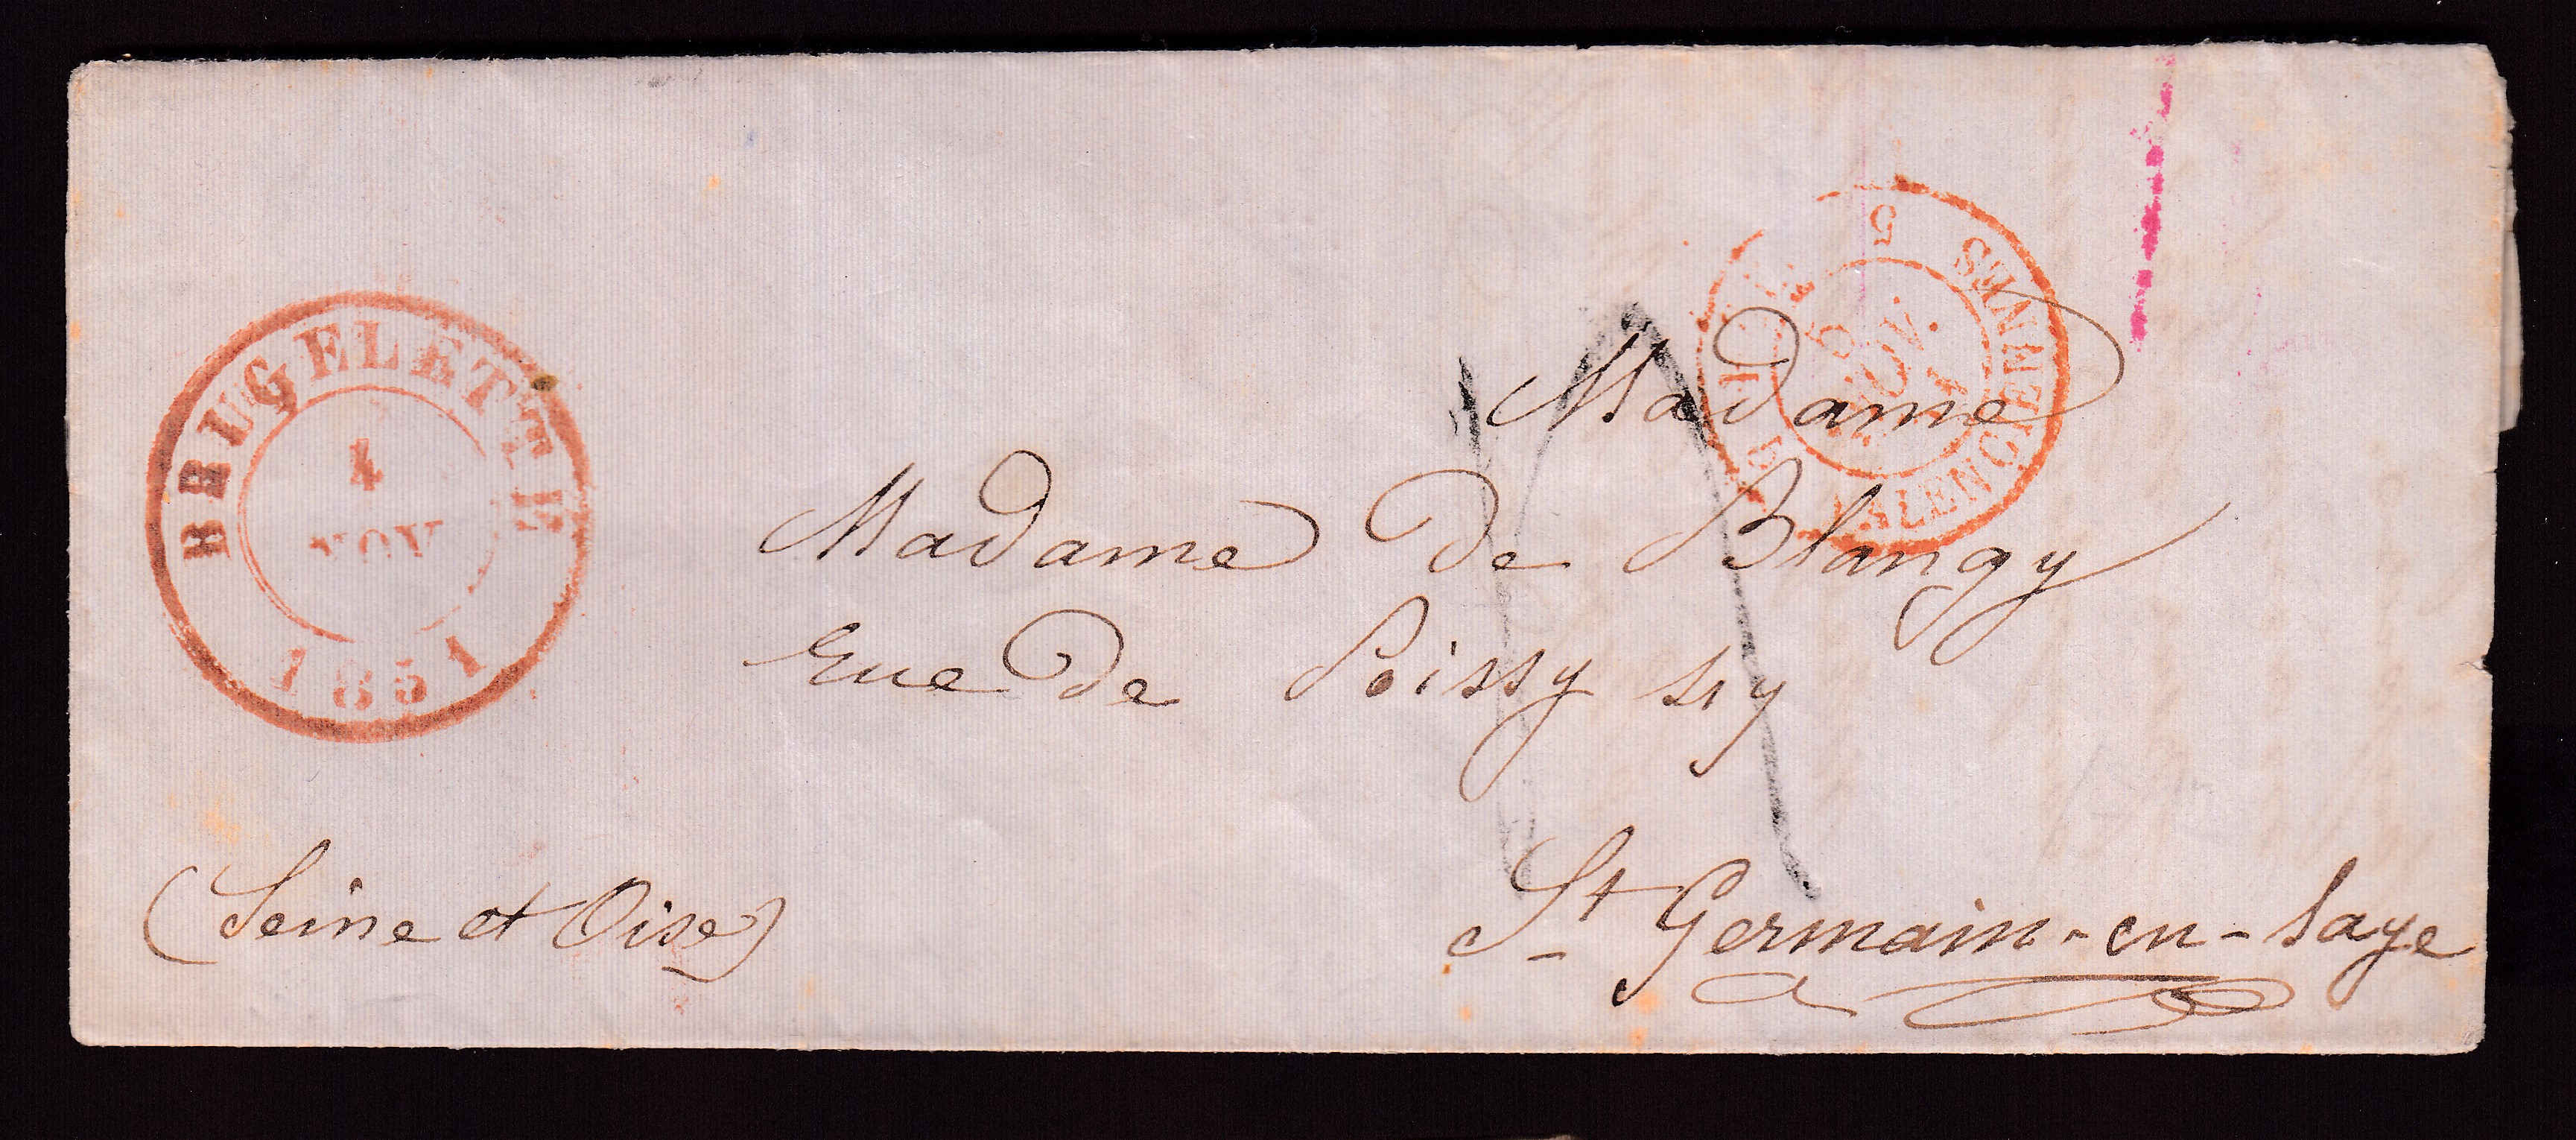 BRUGELETTE
4
NOV
1851
5
VALENCIENNES
5
NOV.
51
Madame
Madame de Blangy
Rue de Poissy
St Germain-en-Laye
(Seine et Oise)